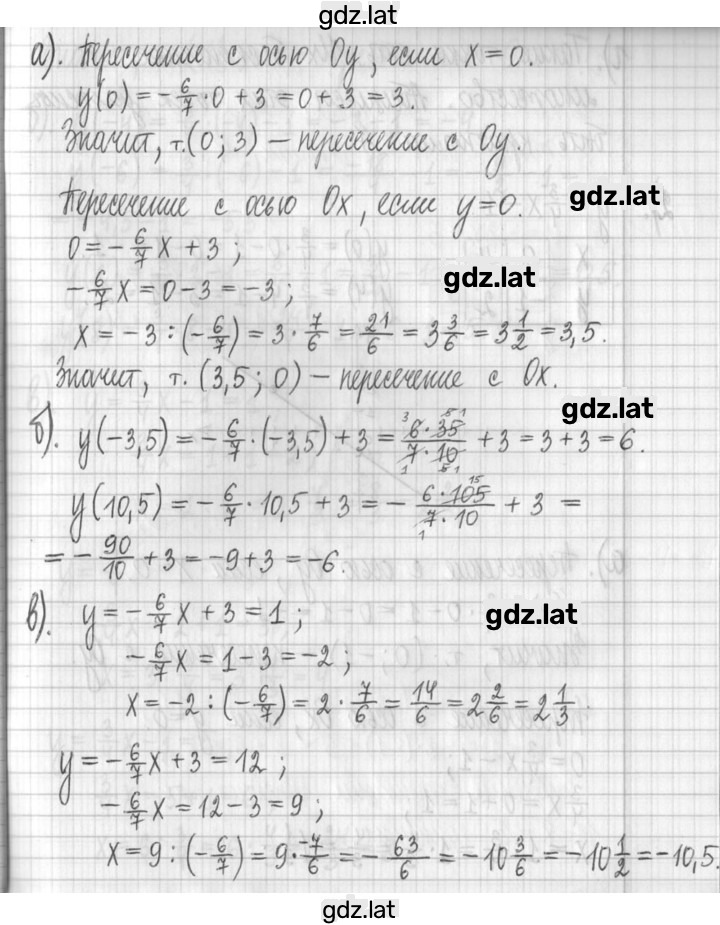 gdz.lat
а). Пересечение с осью Oy, если x = 0.
y(0) = -6/7 · 0 + 3 = 0 + 3 = 3.
Значит, т.(0; 3) – пересечение с Oy.
Пересечение с осью Ox, если y = 0.
gdz.lat
0 = -6/7 x + 3 ;
-6/7 x = 0 - 3 = -3 ;
gdz.lat
x = -3 : (-6/7) = 3 · 7/6 = 21/6 = 3 3/6 = 3 1/2 = 3,5.
Значит, т. (3,5 ; 0) – пересечение с Ox.
gdz.lat
б). y(-3,5) = -6/7 · (-3,5) + 3 = 6·35/7·10 + 3 = 3 + 3 = 6.
y(10,5) = -6/7 · 10,5 + 3 = - 6·105/7·10 + 3 =
= - 90/10 + 3 = -9 + 3 = -6.
в). y = -6/7 x + 3 = 1 ;
gdz.lat
-6/7 x = 1 - 3 = -2 ;
x = -2 : (-6/7) = 2 · 7/6 = 14/6 = 2 2/6 = 2 1/3 .
y = -6/7 x + 3 = 12 ;
-6/7 x = 12 - 3 = 9 ;
x = 9 : (-6/7) = 9 · -7/6 = - 63/6 = -10 3/6 = -10 1/2 = -10,5.
gdz.lat